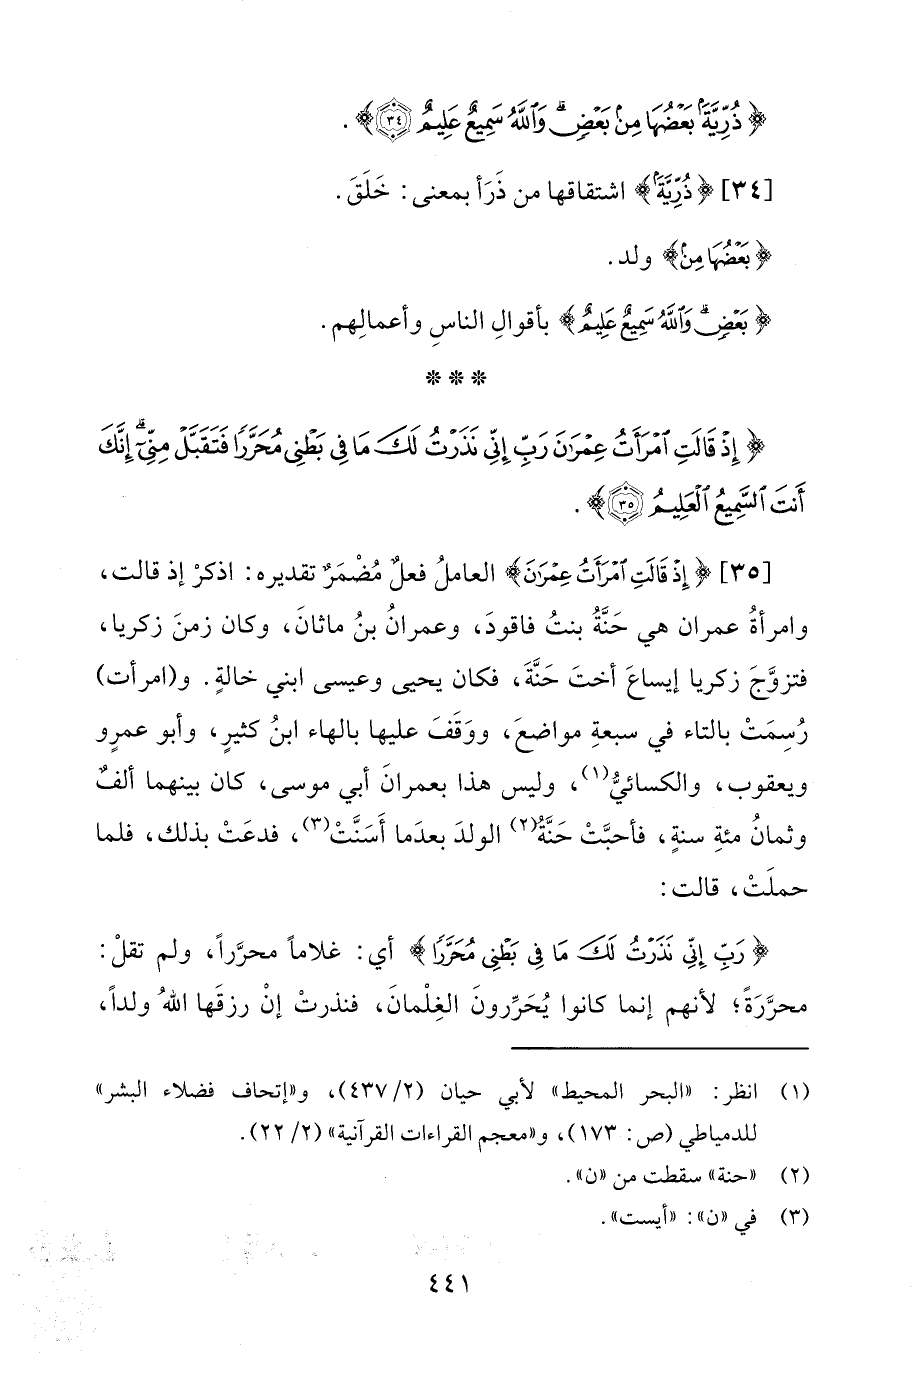 ﴿ ذُرِّيَّةًۢ بَعْضُهَا مِنۢ بَعْضٍۗ وَٱللَّهُ سَمِيعٌ عَلِيمٌ ٣٤ ﴾ .
[٣٤] ﴿ ذُرِّيَّةًۢ ﴾ اشتقاقها من ذَرَأ بمعنى : خَلَقَ .
﴿ بَعْضُهَا مِنۢ ﴾ ولد .
﴿ بَعْضٍۗ وَٱللَّهُ سَمِيعٌ عَلِيمٌ ﴾ بأقوالِ الناسِ وأعمالِهم .
* * *
﴿ إِذْ قَالَتِ ٱمْرَأَتُ عِمْرَٰنَ رَبِّ إِنِّي نَذَرْتُ لَكَ مَا فِي بَطْنِي مُحَرَّرًا فَتَقَبَّلْ مِنِّيٓۖ إِنَّكَ
أَنتَ ٱلسَّمِيعُ ٱلْعَلِيمُ ٣٥ ﴾ .
[٣٥] ﴿ إِذْ قَالَتِ ٱمْرَأَتُ عِمْرَٰنَ ﴾ العاملُ فعلٌ مُضْمَرٌ تقديره : اذكرْ إذ قالت،
وامرأةُ عمران هي حَنَّةُ بنتُ فاقودَ، وعمرانُ بنُ ماثانَ، وكان زمنَ زكريا،
فتزوَّجَ زكريا إيساعَ أختَ حَنَّةَ، فكان يحيى وعيسى ابني خالةٍ. و(امرأت)
رُسِمَتْ بالتاء في سبعةِ مواضعَ، ووَقَفَ عليها بالهاء ابنُ كثيرٍ، وأبو عمرٍو
ويعقوب، والكسائيُّ(١)، وليس هذا بعمرانَ أبي موسى، كان بينهما ألفٌ
وثمانُ مئةِ سنةٍ، فأحبَّتْ حَنَّةُ(٢) الولدَ بعدَما أَسَنَّتْ(٣)، فدعَتْ بذلك، فلما
حملَتْ، قالت :
﴿ رَبِّ إِنِّي نَذَرْتُ لَكَ مَا فِي بَطْنِي مُحَرَّرًا ﴾ أي : غلاماً محرَّراً، ولم تقلْ :
محرَّرَةً؛ لأنهم إنما كانوا يُحَرِّرونَ الغِلْمانَ، فنذرتْ إنْ رزقَها اللهُ ولداً،
(١) انظر : «البحر المحيط» لأبي حيان (٢/ ٤٣٧)، و«إتحاف فضلاء البشر»
للدمياطي (ص: ١٧٣)، و«معجم القراءات القرآنية» (٢/ ٢٢).
(٢) «حنة» سقطت من «ن».
(٣) في «ن» : «أيست».
٤٤١